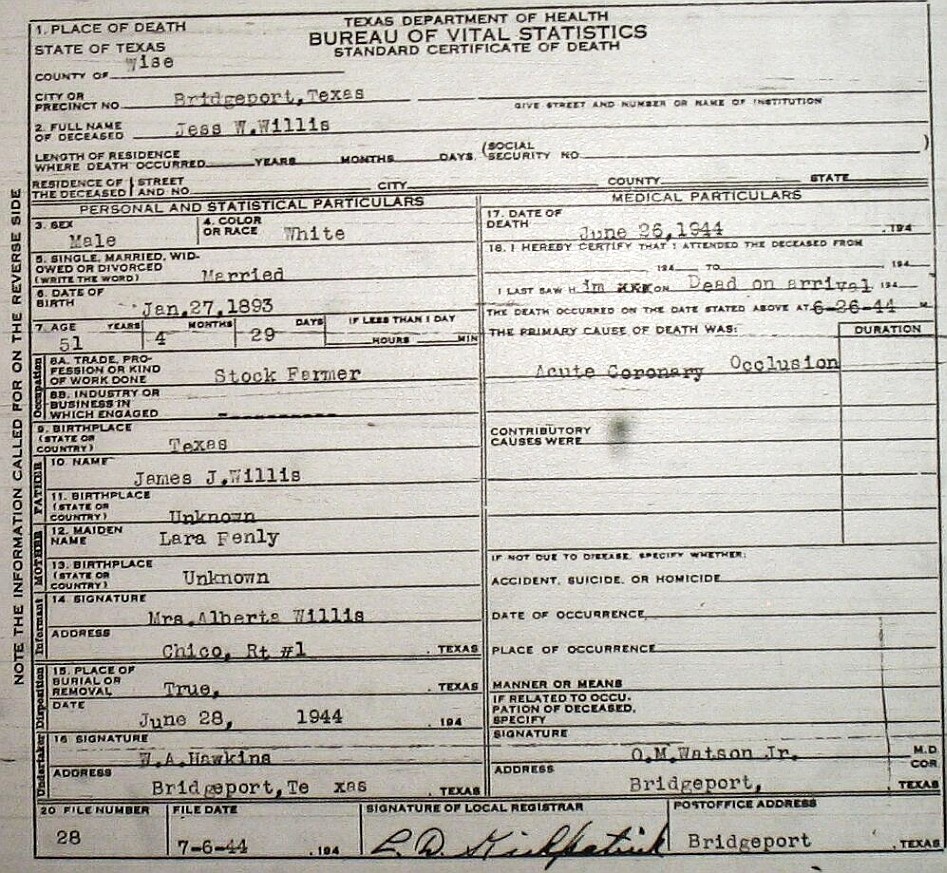 TEXAS DEPARTMENT OF HEALTH
BUREAU OF VITAL STATISTICS
STANDARD CERTIFICATE OF DEATH
NOTE THE INFORMATION CALLED FOR ON THE REVERSE SIDE
1. PLACE OF DEATH
STATE OF TEXAS
COUNTY OF Wise
CITY OR PRECINCT NO. Bridgeport, Texas
GIVE STREET AND NUMBER OR NAME OF INSTITUTION
2. FULL NAME OF DECEASED Jess W.Willis
LENGTH OF RESIDENCE WHERE DEATH OCCURRED YEARS MONTHS DAYS. (SOCIAL SECURITY NO )
RESIDENCE OF THE DECEASED { STREET AND NO. CITY COUNTY STATE
PERSONAL AND STATISTICAL PARTICULARS
3. SEX Male
4. COLOR OR RACE White
5. SINGLE, MARRIED, WIDOWED OR DIVORCED (WRITE THE WORD) Married
6. DATE OF BIRTH Jan.27,1893
7. AGE YEARS 51 MONTHS 4 DAYS 29 IF LESS THAN 1 DAY HOURS MIN
Occupation
8A. TRADE, PROFESSION OR KIND OF WORK DONE Stock Farmer
8B. INDUSTRY OR BUSINESS IN WHICH ENGAGED ----------
9. BIRTHPLACE (STATE OR COUNTRY) Texas
FATHER
10. NAME James J.Willis
11. BIRTHPLACE (STATE OR COUNTRY) Unknown
MOTHER
12. MAIDEN NAME Lara Fenly
13. BIRTHPLACE (STATE OR COUNTRY) Unknown
Informant
14 SIGNATURE Mrs.Alberta Willis
ADDRESS Chico, Rt #1 . TEXAS
Disposition
15. PLACE OF BURIAL OR REMOVAL True, . TEXAS
DATE June 28, 1944 . 194
Undertaker
16 SIGNATURE W.A.Hawkins
ADDRESS Bridgeport,Te xas . TEXAS
MEDICAL PARTICULARS
17. DATE OF DEATH June 26,1944 . 194
18. I HEREBY CERTIFY THAT I ATTENDED THE DECEASED FROM
194 TO 194
I LAST SAW H im xxx ON Dead on arrival 194
THE DEATH OCCURRED ON THE DATE STATED ABOVE AT 6-26-44 M
THE PRIMARY CAUSE OF DEATH WAS: DURATION
Acute Coronary Occlusion
CONTRIBUTORY CAUSES WERE
IF NOT DUE TO DISEASE, SPECIFY WHETHER:
ACCIDENT, SUICIDE, OR HOMICIDE
DATE OF OCCURRENCE
PLACE OF OCCURRENCE
MANNER OR MEANS
IF RELATED TO OCCUPATION OF DECEASED, SPECIFY
SIGNATURE O.M.Watson Jr. M.D. COR.
ADDRESS Bridgeport, TEXAS
20 FILE NUMBER 28
FILE DATE 7-6-44 . 194
SIGNATURE OF LOCAL REGISTRAR L D. Kirkpatrick
POSTOFFICE ADDRESS Bridgeport . TEXAS